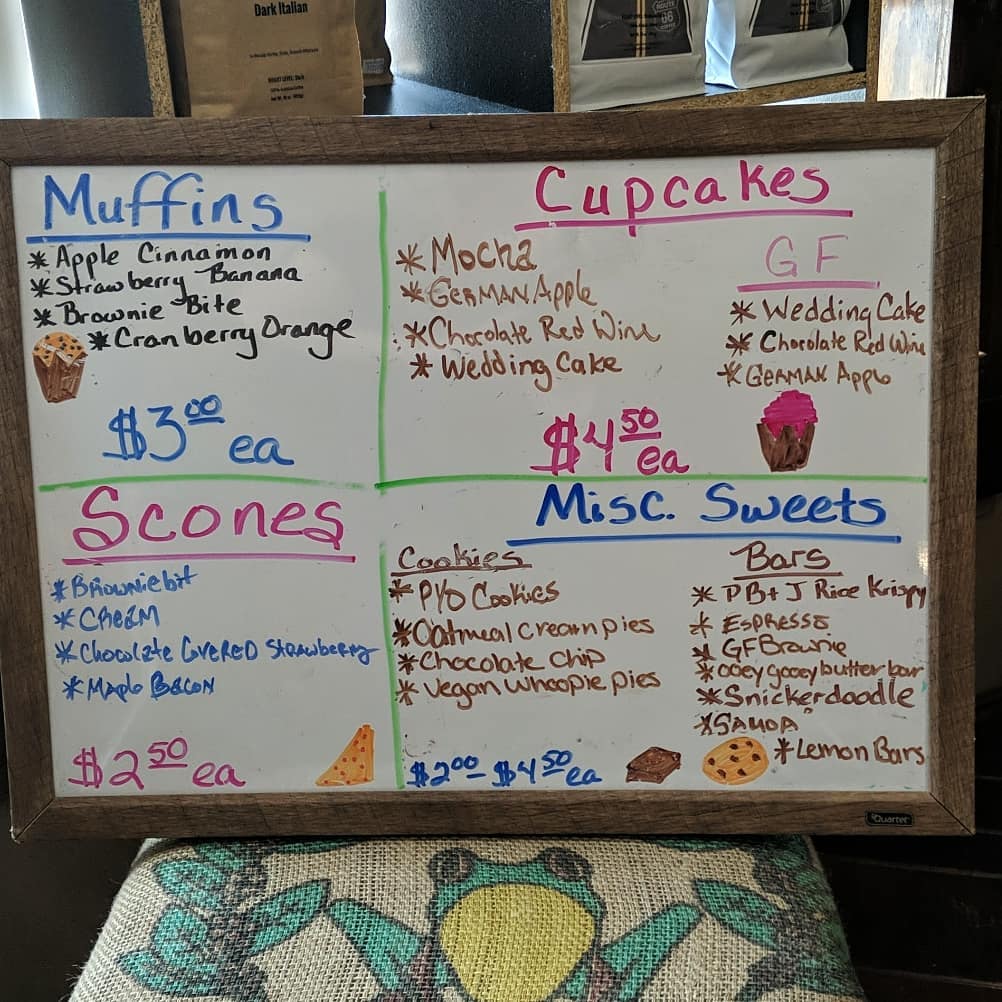 Dark Italian
ROAST LEVEL: Dark
ROUTE
66
Muffins
* Apple Cinnamon
* Strawberry Banana
* Brownie Bite
* Cranberry Orange
$3.00 ea
Cupcakes
* Mocha
* GERMAN Apple
* Chocolate Red Wine
* Wedding Cake
GF
* Wedding Cake
* Chocolate Red Wine
* GERMAN Apple
$4.50 ea
Scones
* Browniebit
* CREAM
* Chocolate COVERED Strawberry
* Maple Bacon
$2.50 ea
Misc. Sweets
Cookies
* PYO Cookies
* Oatmeal Cream pies
* Chocolate Chip
* Vegan Whoopie pies
Bars
* PB + J Rice Krispy
* ESPRESSO
* GF Brownie
* ooey gooey butter bar
* Snickerdoodle
* SAMOA
* Lemon Bars
$2.00 - $4.50 ea
Quartet